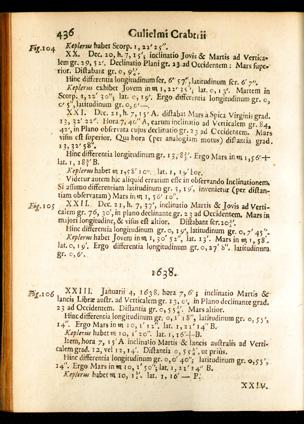 436 Gulielmi Crabtrii
Keplerus habet Scorp. 1, 22' 25".
Fig.104 XX. Dec. 20, h. 7, 15', inclinatio Jovis & Martis ad Vertica-
lem gr. 29, 52'. Declinatio Plani gr. 23 ad Occidentem: Mars supe-
rior. Distabant gr. 0, 9'
Hinc differentia longitudinum fer. 6' 57", latitudinum fer. 6' 7".
Keplerus exhibet Jovem in ♏ 1, 22' 25", lat. 0, 13'. Martem in
Scorp. 1, 22' 30", lat. 0, 19'. Ergo differentia longitudinum gr. 0,
0' 5", latitudinum gr. 0, 6'—.
XXI. Dec. 21, h. 7, 15' A. distabat Mars à Spica Virginis grad.
13, 32' 22". Hora 7, 40' A, earum inclinatio ad Verticalem gr. 84,
42', in Plano observata cujus declinatio gr. 23 ad Occidentem. Mars
visus est superior. Qua hora (per analogiam motus) distantia grad.
13, 32' 58".
Hinc differentia longitudinum gr. 13, 8 Ergo Mars in ♏ 1, 56'+
lat. 1, 18 B.
Keplerus habet in 1, 58' 10". lat. 1, 19' bor.
Videtur autem hic aliquid erratum esse in observando Inclinationem.
Si assumo differentiam latitudinum gr. 3, 19', invenietur (per distan-
tiam observatam) Mars in ♏ 1, 50' 10".
Fig.105 XXII. Dec. 21, h. 7, 37', inclinatio Martis & Jovis ad Verti-
calem gr. 76, 30', in plano declinante gr. 23 ad Occidentem. Mars in
majori longitudine, & visus est altior. Distabant fer. 20
Hinc differentia longitudinum gr. 0, 19', latitudinum gr. 0, 7' 45".
Keplerus habet Jovem in ♏ 1, 30' 52", lat. 13'. Mars in ♏ 1, 58".
lat. 0, 19'. Ergo differentia longitudinum gr. 0, 27' 8". latitudinum
gr. 0, 6'.
1638.
Fig.106 XXIII. Januarii 4, 1638, hora 7, 6' inclinatio Martis &
lancis Libræ austr. ad Verticalem gr. 13, 0', in Plano declinante grad.
23 ad Occidentem. Distantia gr. 0, 55 Mars altior.
Hinc differentia longitudinum gr. 0, 1' 18", latitudinum gr. 0, 55',
14". Ergo Mars in ♏ 10, 1' 12". lat. 1, 21' 14" B.
Keplerus habet ♏ 10, 1' 20". lat. 1, 16'—B.
Item, hora 7, 15' A inclinatio Martis & lancis australis ad Verti-
calem grad. 12, vel 12, 14'. Distantia 0, 55 ut prius.
Hinc differentia longitudinum gr. 0, 0' 40"; latitudinum gr. 0, 53',
14". Ergo Mars in ♏ 10, 1' 50"; lat. 1, 21' 14" B.
Keplerus habet ♏ 10, lat. 1, 16'—B.
XXIV.